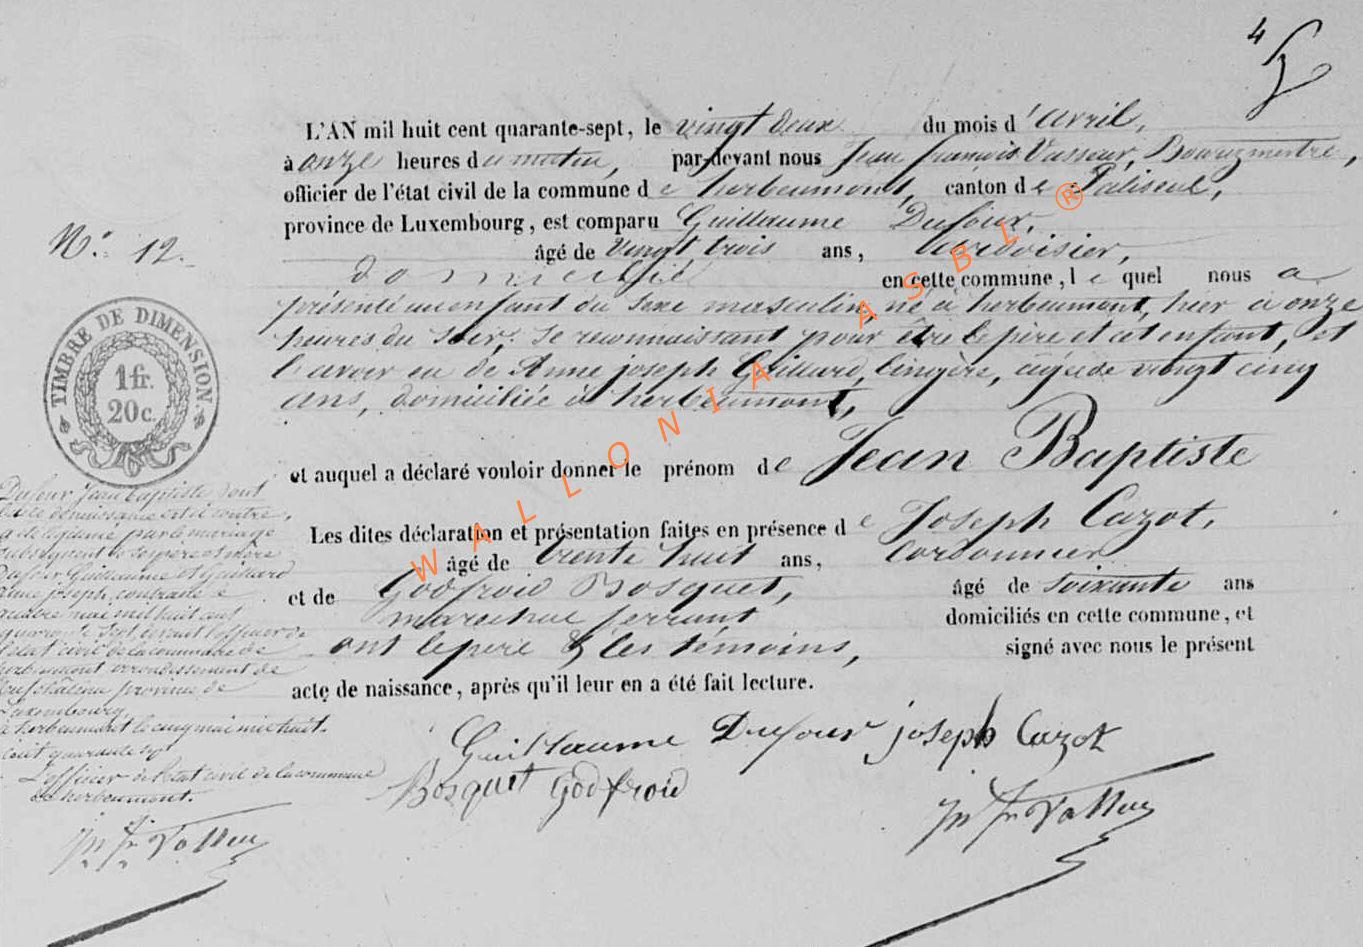 4
L'AN mil huit cent quarante-sept, le vingt deux du mois d'avril,
à onze heures du matin, par-devant nous Jean françois Vasseur, Bourgmestre,
officier de l'état civil de la commune de herbeumont, canton de Paliseul,
province de Luxembourg, est comparu Guillaume Dufour,
N.° 12.
âgé de vingt trois ans, ardoisier,
domicilié en cette commune, lequel nous a
présenté un enfant du sexe masculin, né à herbeumont, hier à onze
heures du soir, se reconnaissant pour etre le père et cet enfant, et
l'avoir eu de Anne joseph Gaillard, lingère, agée de vingt cinq
ans, domiciliée à herbeumont,
et auquel a déclaré vouloir donner le prénom de Jean Baptiste
Les dites déclaration et présentation faites en présence de Joseph Cazot,
âgé de trente huit ans, cordonnier
et de Godfroid Bosquet, âgé de soixante ans
marechal ferrant domiciliés en cette commune, et
ont le pere & les témoins, signé avec nous le présent
acte de naissance, après qu'il leur en a été fait lecture.
Guillaume Dufour joseph Cazot
Bosquet Godfroid
TIMBRE DE DIMENSION
1 fr.
20 c.
Dufour Jean baptiste dont
l'acte de naissance est ci contre,
a été légitimé par le mariage
subséquent de ses père et mère
Dufour Guillaume et Gaillard
anne joseph, contracté le
quatre mai mil huit cent
quarante sept, devant l'officier de
l'état civil de la commune de
herbeumont arrondissement de
neufchâteau province de
Luxembourg
à herbeumont le cinq mai mil huit
cent quarante sept
L'officier de l'état civil de la commune
de herbeumont.
WALLONIA ASBL ®